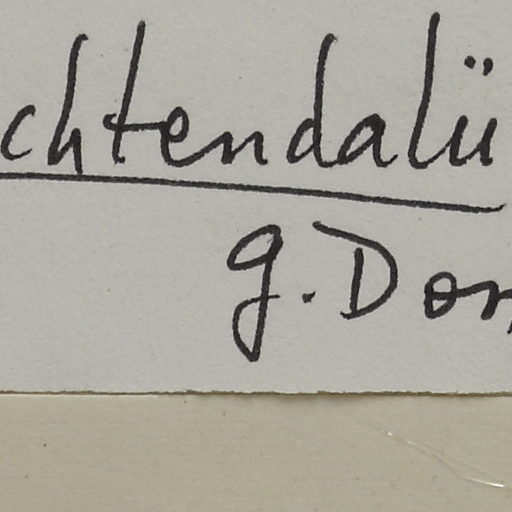 chtendalü
G. Dor